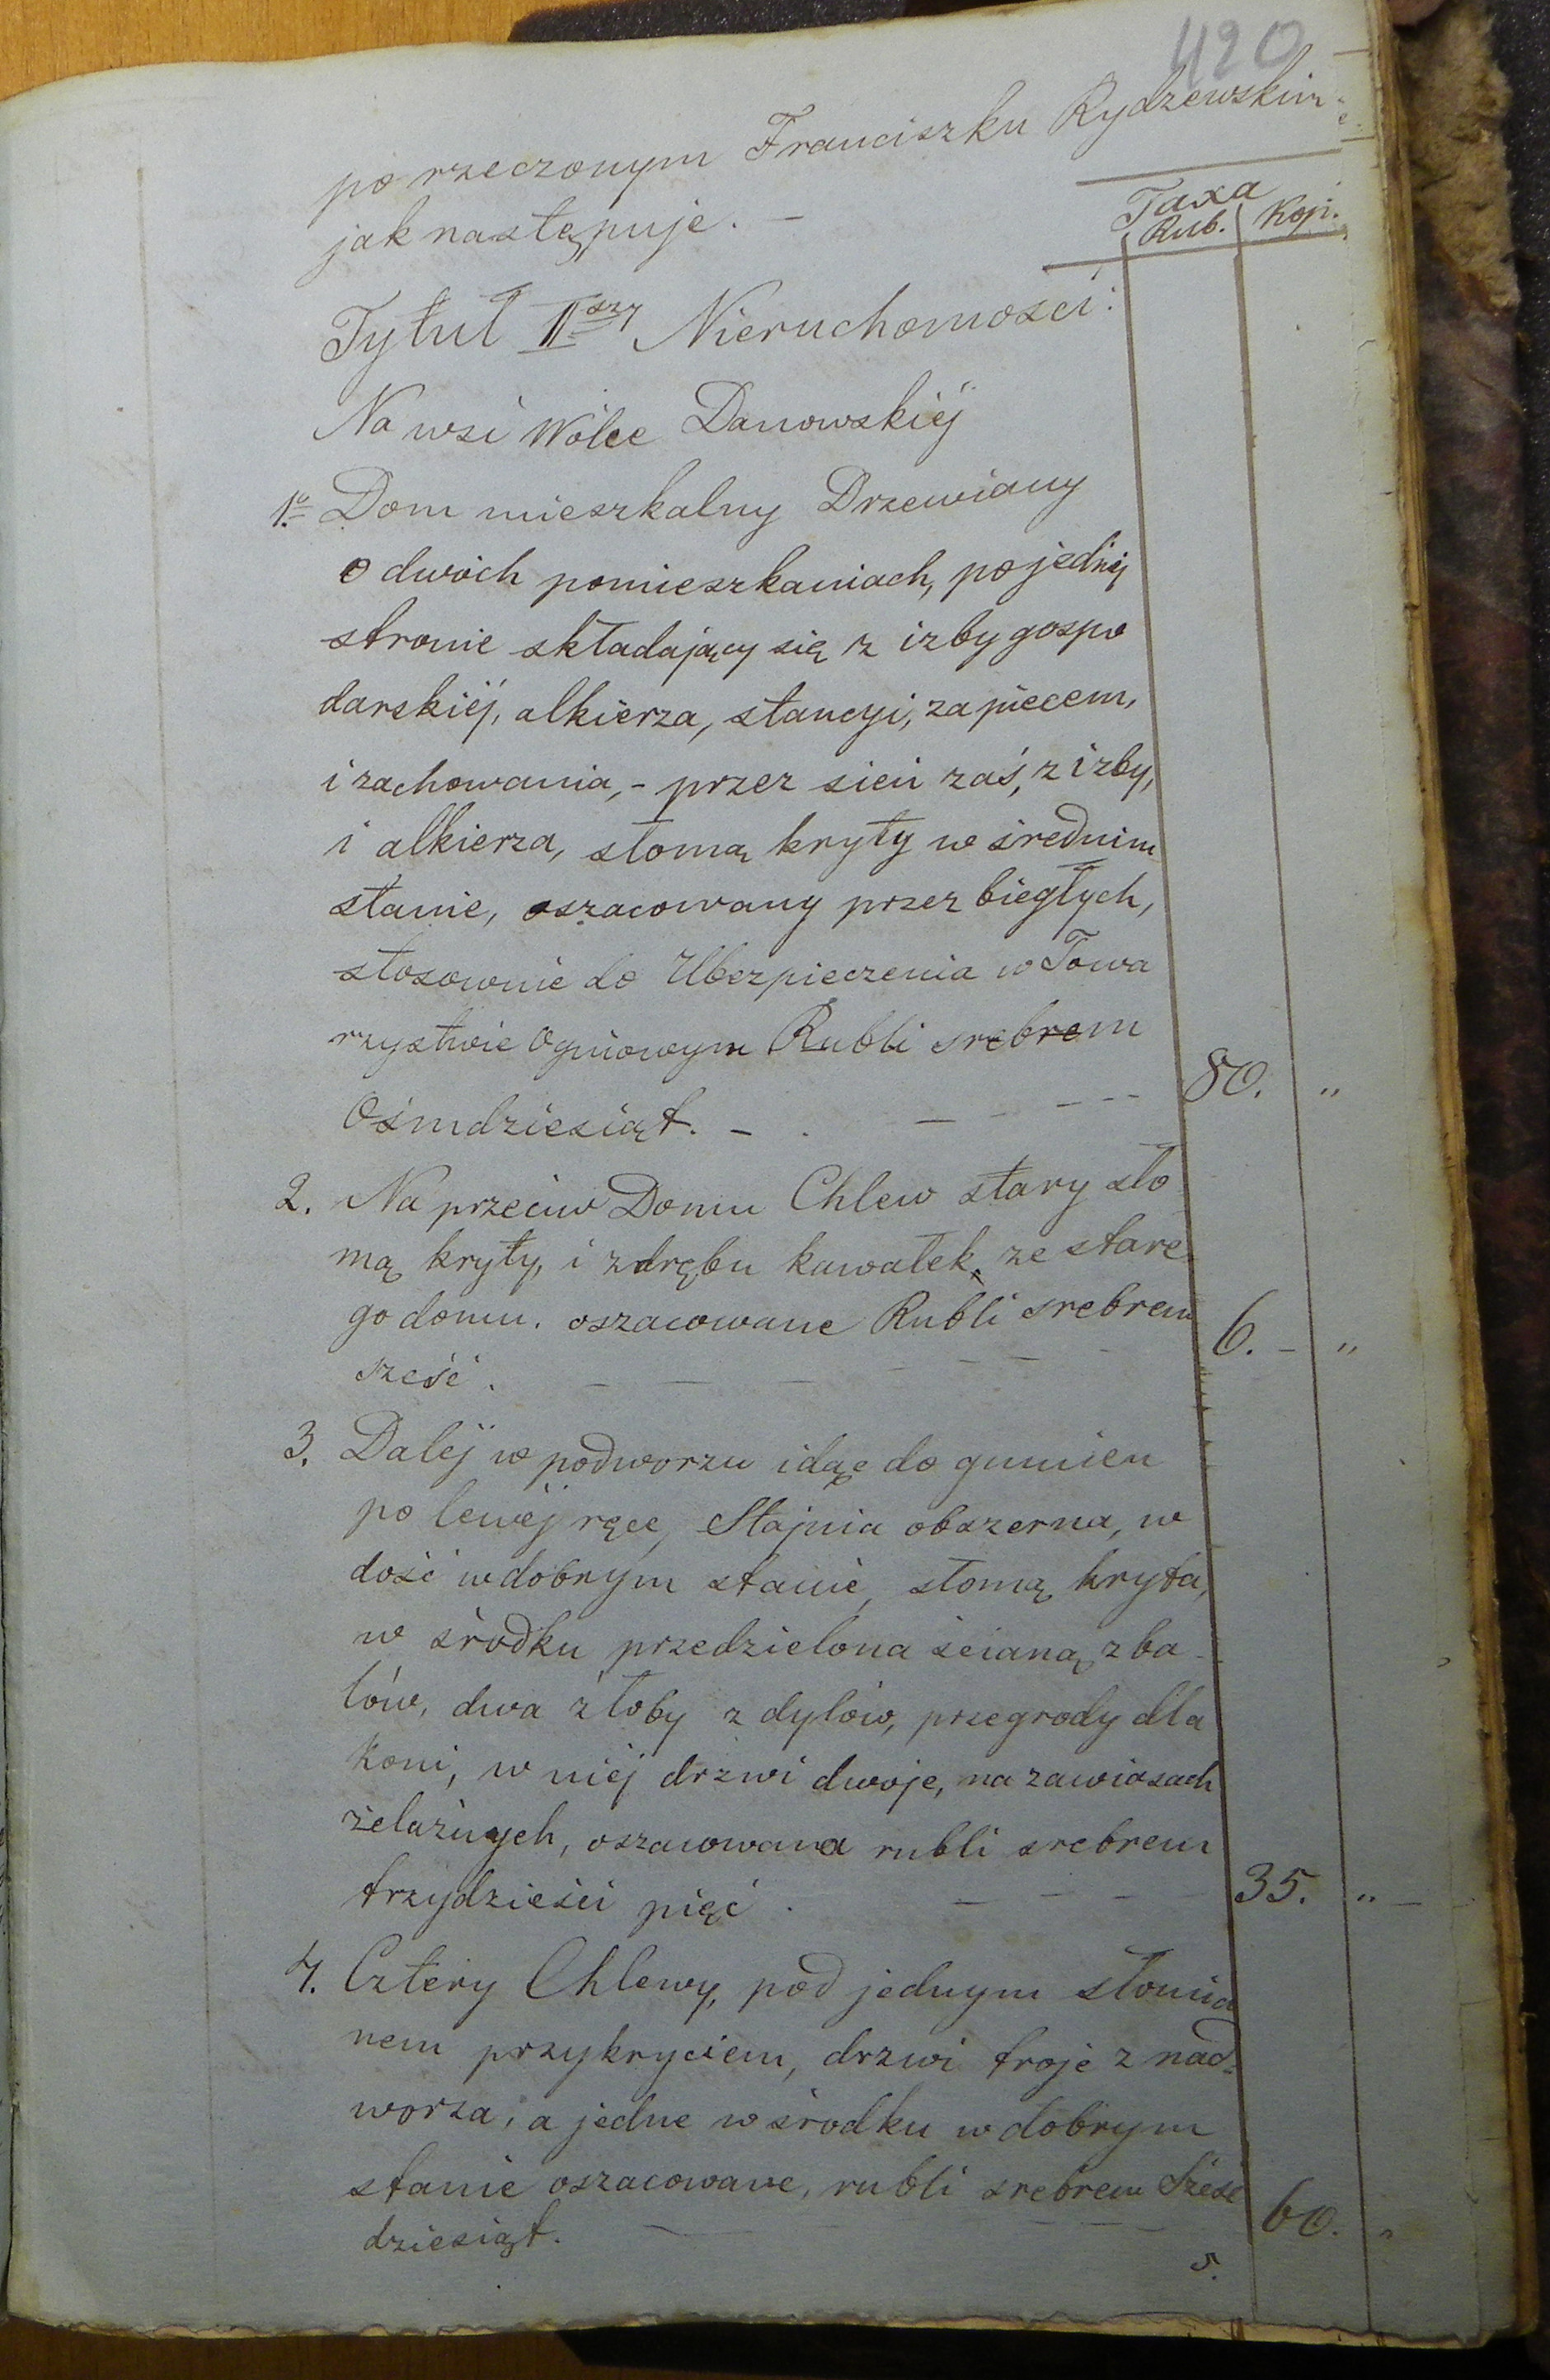 420
po rzeczonym Franciszku Rydzewskim
jak następuje. –
Taxa
Rub. Kop.
Tytuł I<sup>szy</sup> Nieruchomości:
Na wsi Wólce Danowskiéj
1º Dom mieszkalny Drzewiany
o dwóch pomieszkaniach, po jednéj
stronie składający się z izby gospo
darskiéj, alkierza, stancyi, za piecem,
i zachowania, - przez sień zaś, z izby,
i alkierza, słomą kryty w średnim
stanie, oszacowany przez biegłych,
stosownie do Ubezpieczenia w Towa
rzystwie Ogniowym Rubli srebrem
Ośmdziesiąt. – 80. "
2. Na przeciw Domu Chlew stary sło
mą kryty, i zdrębu kawałek, ze stare
go domu. oszacowane Rubli srebrem
sześć. 6. – "
3. Daléj w podworzu idąc do gumien
po lewéj ręce, Stajnia obszerna, w
dość w dobrym stanie, słomą kryta,
w środku przedzielona ścianą z ba
lów, dwa żłoby z dylów, przegrody dla
koni, w niéj drzwi dwoje, na zawiasach
żelaznych, oszacowana rubli srebrem
trzydzieści pięć. 35. " –
4. Cztery Chlewy, pod jednym słomia
nem przykryciem, drzwi troje z nad=
worza, a jedne w środku w dobrym
stanie oszacowane, rubli srebrem Sześć
dziesiąt. 60. "
5.